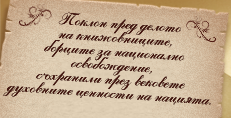 Поклон пред делото
на книжовниците,
борците за национално
освобождение,
съхранили през вековете
духовните ценности на нацията.